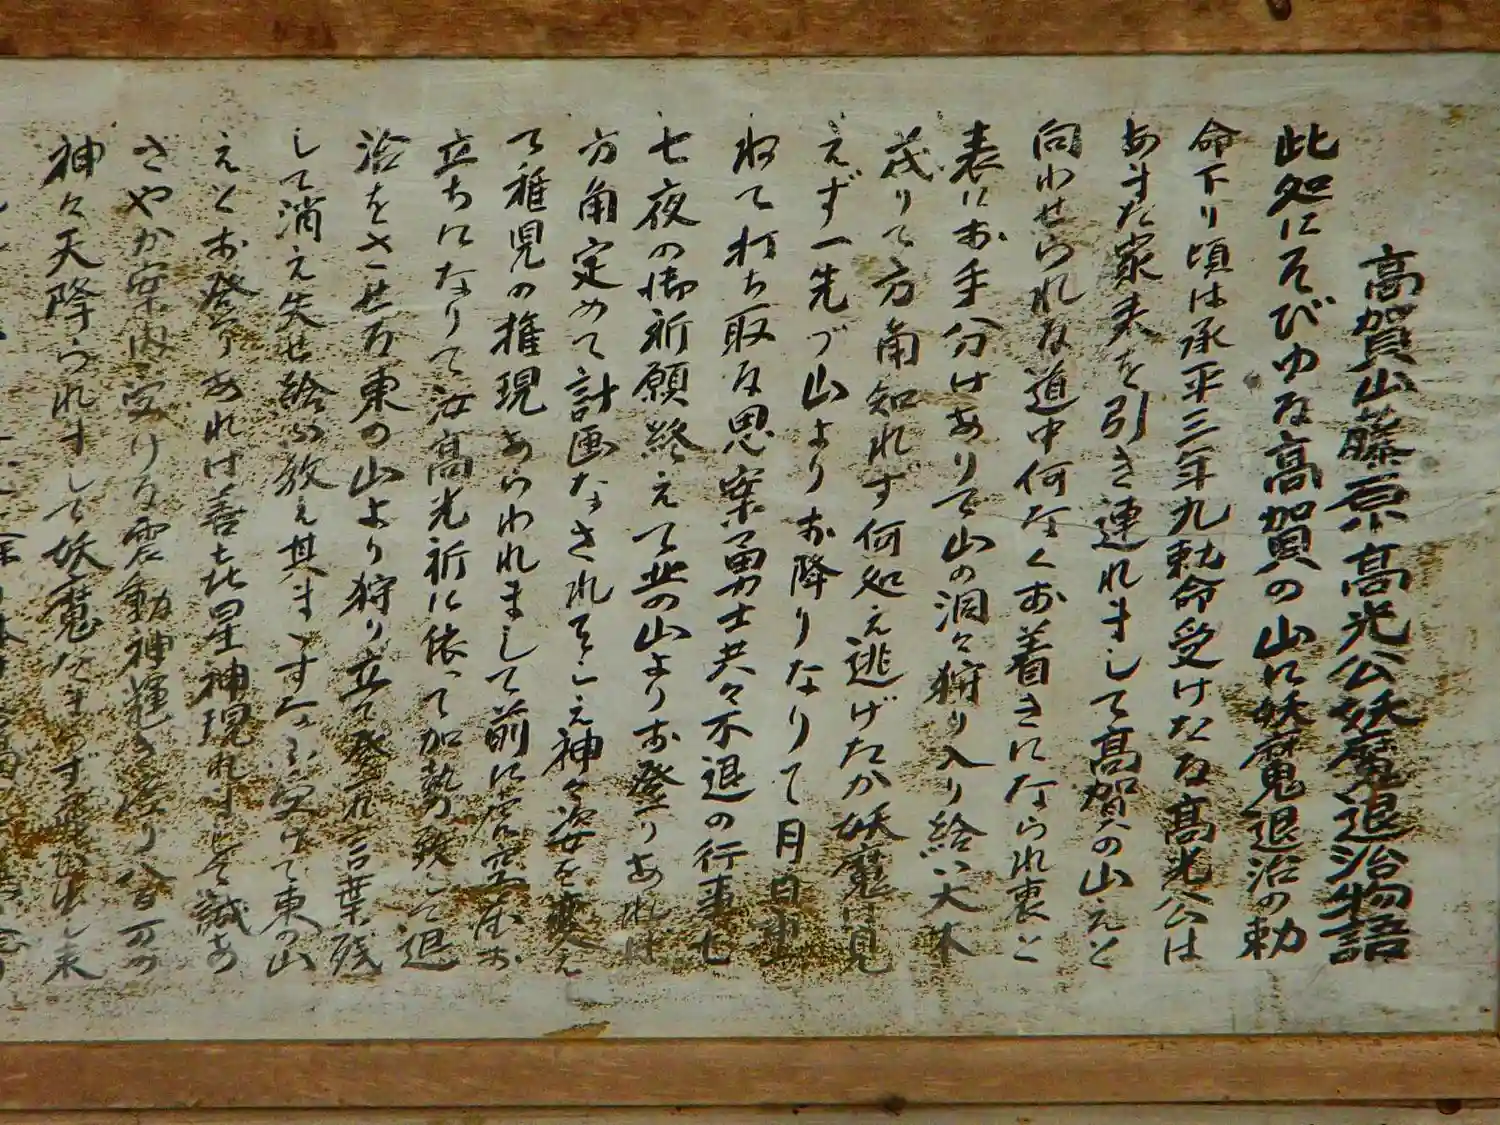 高賀山藤原高光公妖魔退治物語
此処にそびゆる高賀の山に妖魔退治の勅
命下り頃は承平三年九勅命受けたる高光公は
あまた家来を引き連れまして高賀の山えと
向わせられる道中何なくお着きになられ裏と
表にお手分けありて山の洞々狩り入り給い大木
茂りて方角知れず何処え逃げたか妖魔は見
えず一先づ山よりお降りなりて月日重
ねて打ち取る思案勇士共々不退の行事七
七夜の御祈願終えて北の山よりお登りあれば
方角定めて計画なされそこえ神々姿を変え
て稚児の権現あらわれまして前に虚空蔵お
立ちになりて汝高光祈に依って加勢の
治をさせる東の山より狩り立て登れ言葉残
して消え失せ給ふ教え其まますなふ受けて東の山
えとお登りあれば善七星神現れまし 誠あ
さやか案内受ける震動神輝き渡り八百万の
神々天降られまして妖魔たまらず飛び出し来